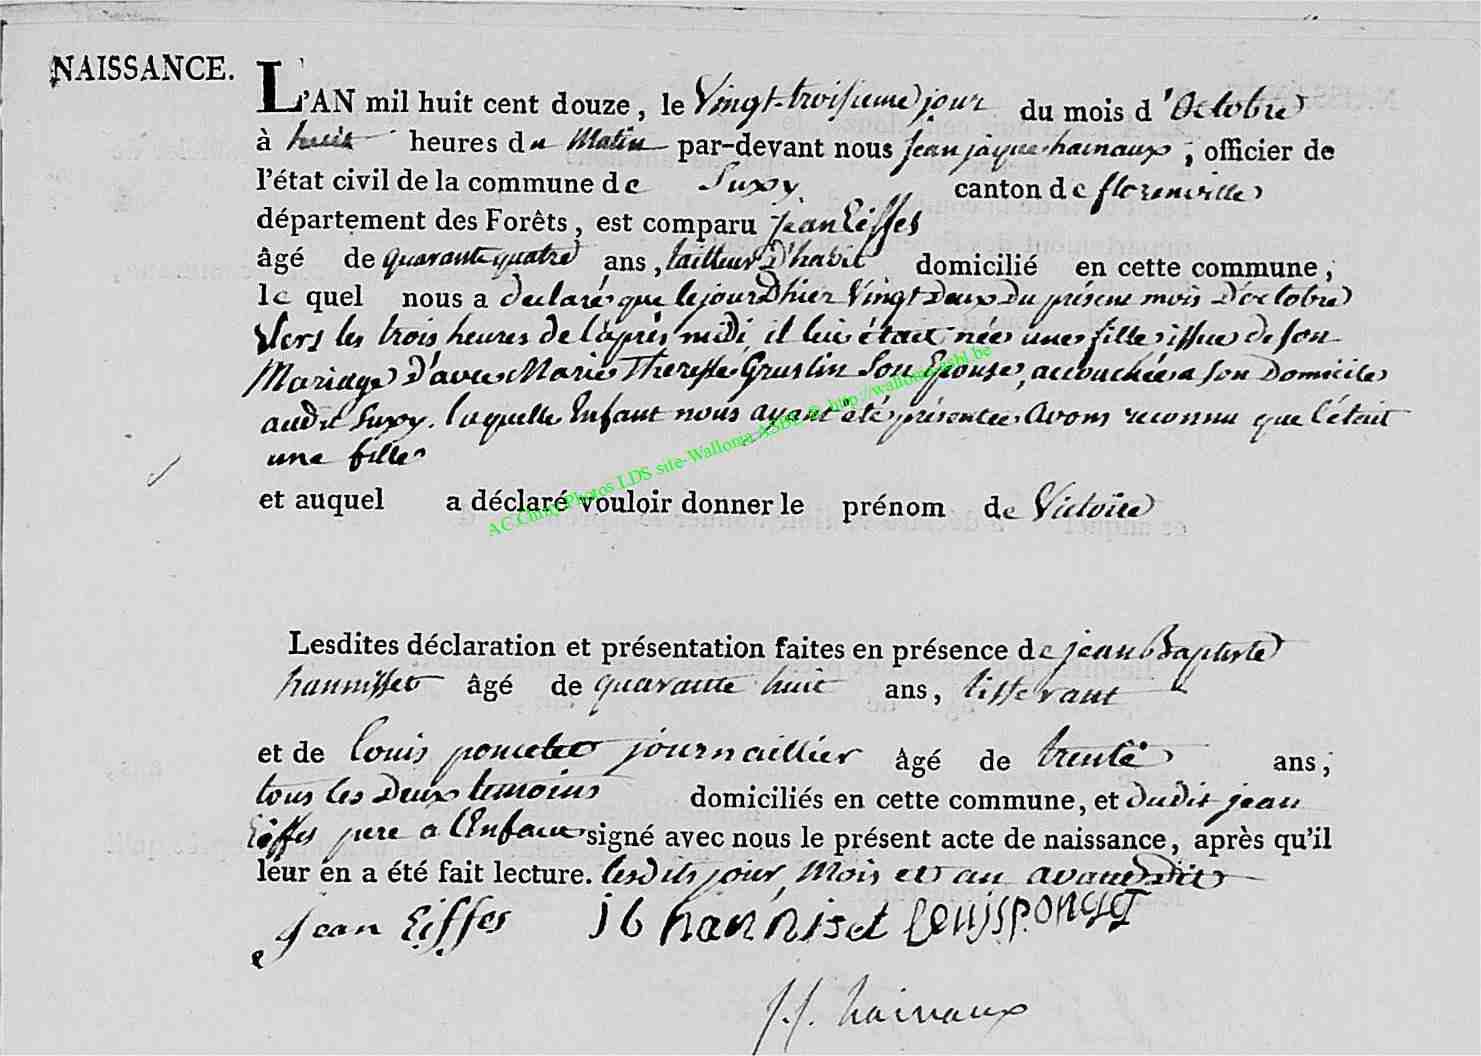 NAISSANCE.
L'AN mil huit cent douze, le Vingt-troisieme jour du mois d'Octobre
à huit heures du Matin par-devant nous jean jaque hainaux, officier de
l'état civil de la commune de Suxy canton de florenville
département des Forêts, est comparu jean Eiffes
âgé de quarante quatre ans, tailleur D'habit domicilié en cette commune;
le quel nous a declaré que le jour Dhier Vingt Deux Du présent mois D'octobre
Vers les trois heures de l'après midi, il lui était née une fille issue de son
Mariage D'avec Marie Theresse Gruslin Son Epouse, accouchée a Son Domicile
audit Suxy. laquelle Enfant nous ayant été présentée avons reconnu que c'était
une fille
et auquel a déclaré vouloir donner le prénom de Victoire
AC Chiny Photos LDS site-Wallonia ASBL © http://wallonia-asbl.be
Lesdites déclaration et présentation faites en présence de jean Baptiste
hannisset âgé de quarante huit ans,
et de louis poncelet journaillier âgé de trente ans;
tous les Deux temoins domiciliés en cette commune, et dudit jean
Eiffes pere a l'Enfant signé avec nous le présent acte de naissance, après qu'il
leur en a été fait lecture. lesdits jour, Mois et an avant Dit
jean Eiffes j b hanniset Louis
j.j. hainaux